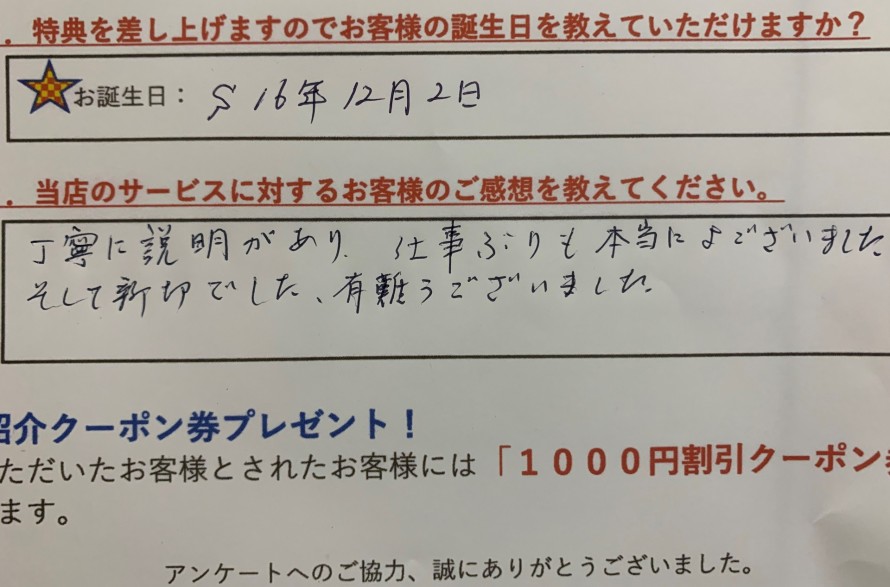 ．特典を差し上げますのでお客様の誕生日を教えていただけますか？
お誕生日： S 16年 12月 2日
．当店のサービスに対するお客様のご感想を教えてください。
丁寧に説明があり、仕事ぶりも本当によございました
そして新切でした、有難うございました。
紹介クーポン券プレゼント！
ただいたお客様とされたお客様には「１０００円割引クーポン券
ます。
アンケートへのご協力、誠にありがとうございました。